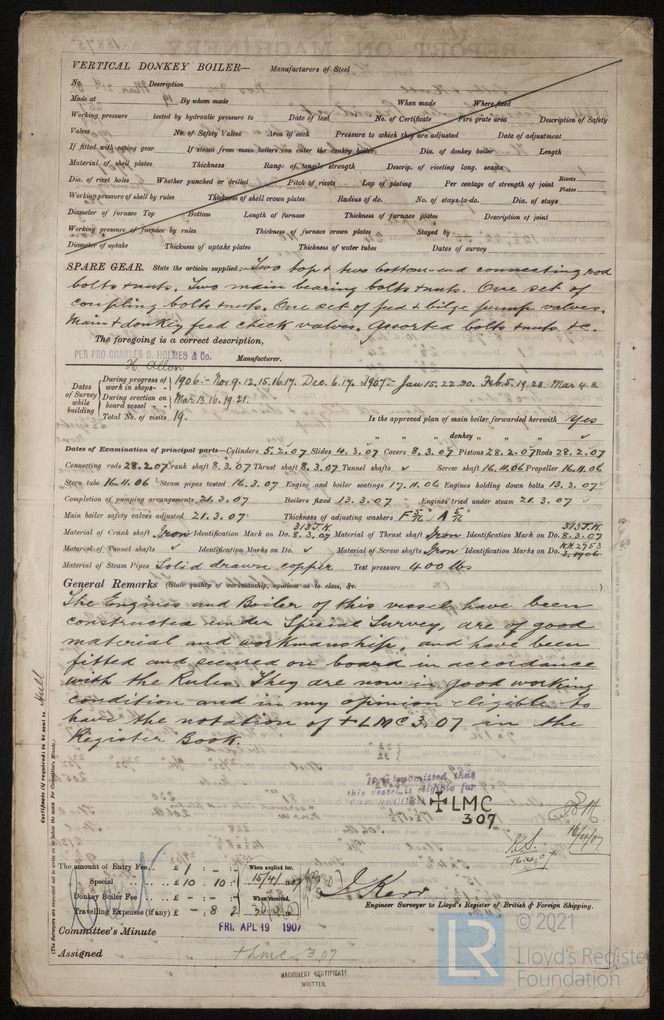 VERTICAL DONKEY BOILER— Manufacturers of Steel
No. Description
Made at 19 By whom made When made Where fixed
Working pressure tested by hydraulic pressure to Date of test No. of Certificate Fire grate area Description of Safety
Valves No. of Safety Valves Area of each Pressure to which they are adjusted Date of adjustment
If fitted with easing gear If steam from main boilers can enter the donkey boiler Dia. of donkey boiler Length
Material of shell plates Thickness Range of tensile strength Descrip. of riveting long. seams
Dia. of rivet holes Whether punched or drilled Pitch of rivets Lap of plating Per centage of strength of joint Rivets Plates
Working pressure of shell by rules Thickness of shell crown plates Radius of do. No. of stays to do. Dia. of stays
Diameter of furnace Top Bottom Length of furnace Thickness of furnace plates Description of joint
Working pressure of furnace by rules Thickness of furnace crown plates Stayed by
Diameter of uptake Thickness of uptake plates Thickness of water tubes Dates of survey
SPARE GEAR. State the articles supplied:— Two top & two bottom end connecting rod
bolts & nuts. Two main bearing bolts & nuts. One set of
coupling bolts & nuts. One set of feed & bilge pump valves.
Main & donkey feed check valves. Assorted bolts & nuts &c.
The foregoing is a correct description,
PER PRO CHARLES D. HOLMES & Co. Manufacturer.
Dates of Survey while building
During progress of work in shops - - 1906:- Nov 9. 12. 15. 16. 17. Dec. 6. 17. 1907:- Jan 15. 22. 30. Feb. 5. 19. 28. Mar 4. 8.
During erection on board vessel - - Mar 13. 16. 19. 21.
Total No. of visits 19. Is the approved plan of main boiler forwarded herewith Yes
" " " donkey " " " ✓
Dates of Examination of principal parts—Cylinders 5.2.07 Slides 4.3.07 Covers 8.3.07 Pistons 28.2.07 Rods 28.2.07
Connecting rods 28.2.07 Crank shaft 8.3.07 Thrust shaft 8.3.07 Tunnel shafts ✓ Screw shaft 16.11.06 Propeller 16.11.06
Stern tube 16.11.06 Steam pipes tested 16.3.07 Engine and boiler seatings 17.11.06 Engines holding down bolts 13.3.07
Completion of pumping arrangements 21.3.07 Boilers fixed 13.3.07 Engines tried under steam 21.3.07
Main boiler safety valves adjusted 21.3.07 Thickness of adjusting washers F 5/16 A 5/16
Material of Crank shaft Iron Identification Mark on Do. 313J.K. 8.3.07 Material of Thrust shaft Iron Identification Mark on Do. 313J.K. 8.3.07
Material of Tunnel shafts ✓ Identification Marks on Do. ✓ Material of Screw shafts Iron Identification Marks on Do.
Material of Steam Pipes Solid drawn copper Test pressure 400 lbs
General Remarks (State quality of workmanship, opinions as to class, &c.
The Engines and Boiler of this vessel have been
constructed under Special Survey, are of good
material and workmanship, and have been
fitted and secured on board in accordance
with the Rules. They are now in good working
condition and in my opinion eligible to
have the notation of + LMC 3.07 in the
Register Book.
Certificate (if required) to be sent to Hull
(The Surveyors are requested not to write on or below the space for Committee's Minute.)
It is submitted that
this vessel is eligible for
+ LMC
3 07
16.4.07
The amount of Entry Fee . . £ 1 : - : - When applied for,
Special . . . . £ 10 : 10 : - 15/4/07
Donkey Boiler Fee . . £ - : - : - When received,
Travelling Expenses (if any) £ - : 8 : 2
J. Kerr
Engineer Surveyor to Lloyd's Register of British & Foreign Shipping.
Committee's Minute FRI. APL 19 1907
Assigned + LMC 3.07
MACHINERY CERTIFICATE
WRITTEN.
© 2021
LR Lloyd's Register
Foundation